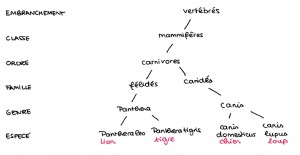 EMBRANCHEMENT vertébrés
CLASSE mammifères
ORDRE carnivores
FAMILLE félidés Canidés
GENRE Panthera Canis
ESPECE Panthera leo Panthera tigris canis domesticus canis lupus
lion tigre chien loup